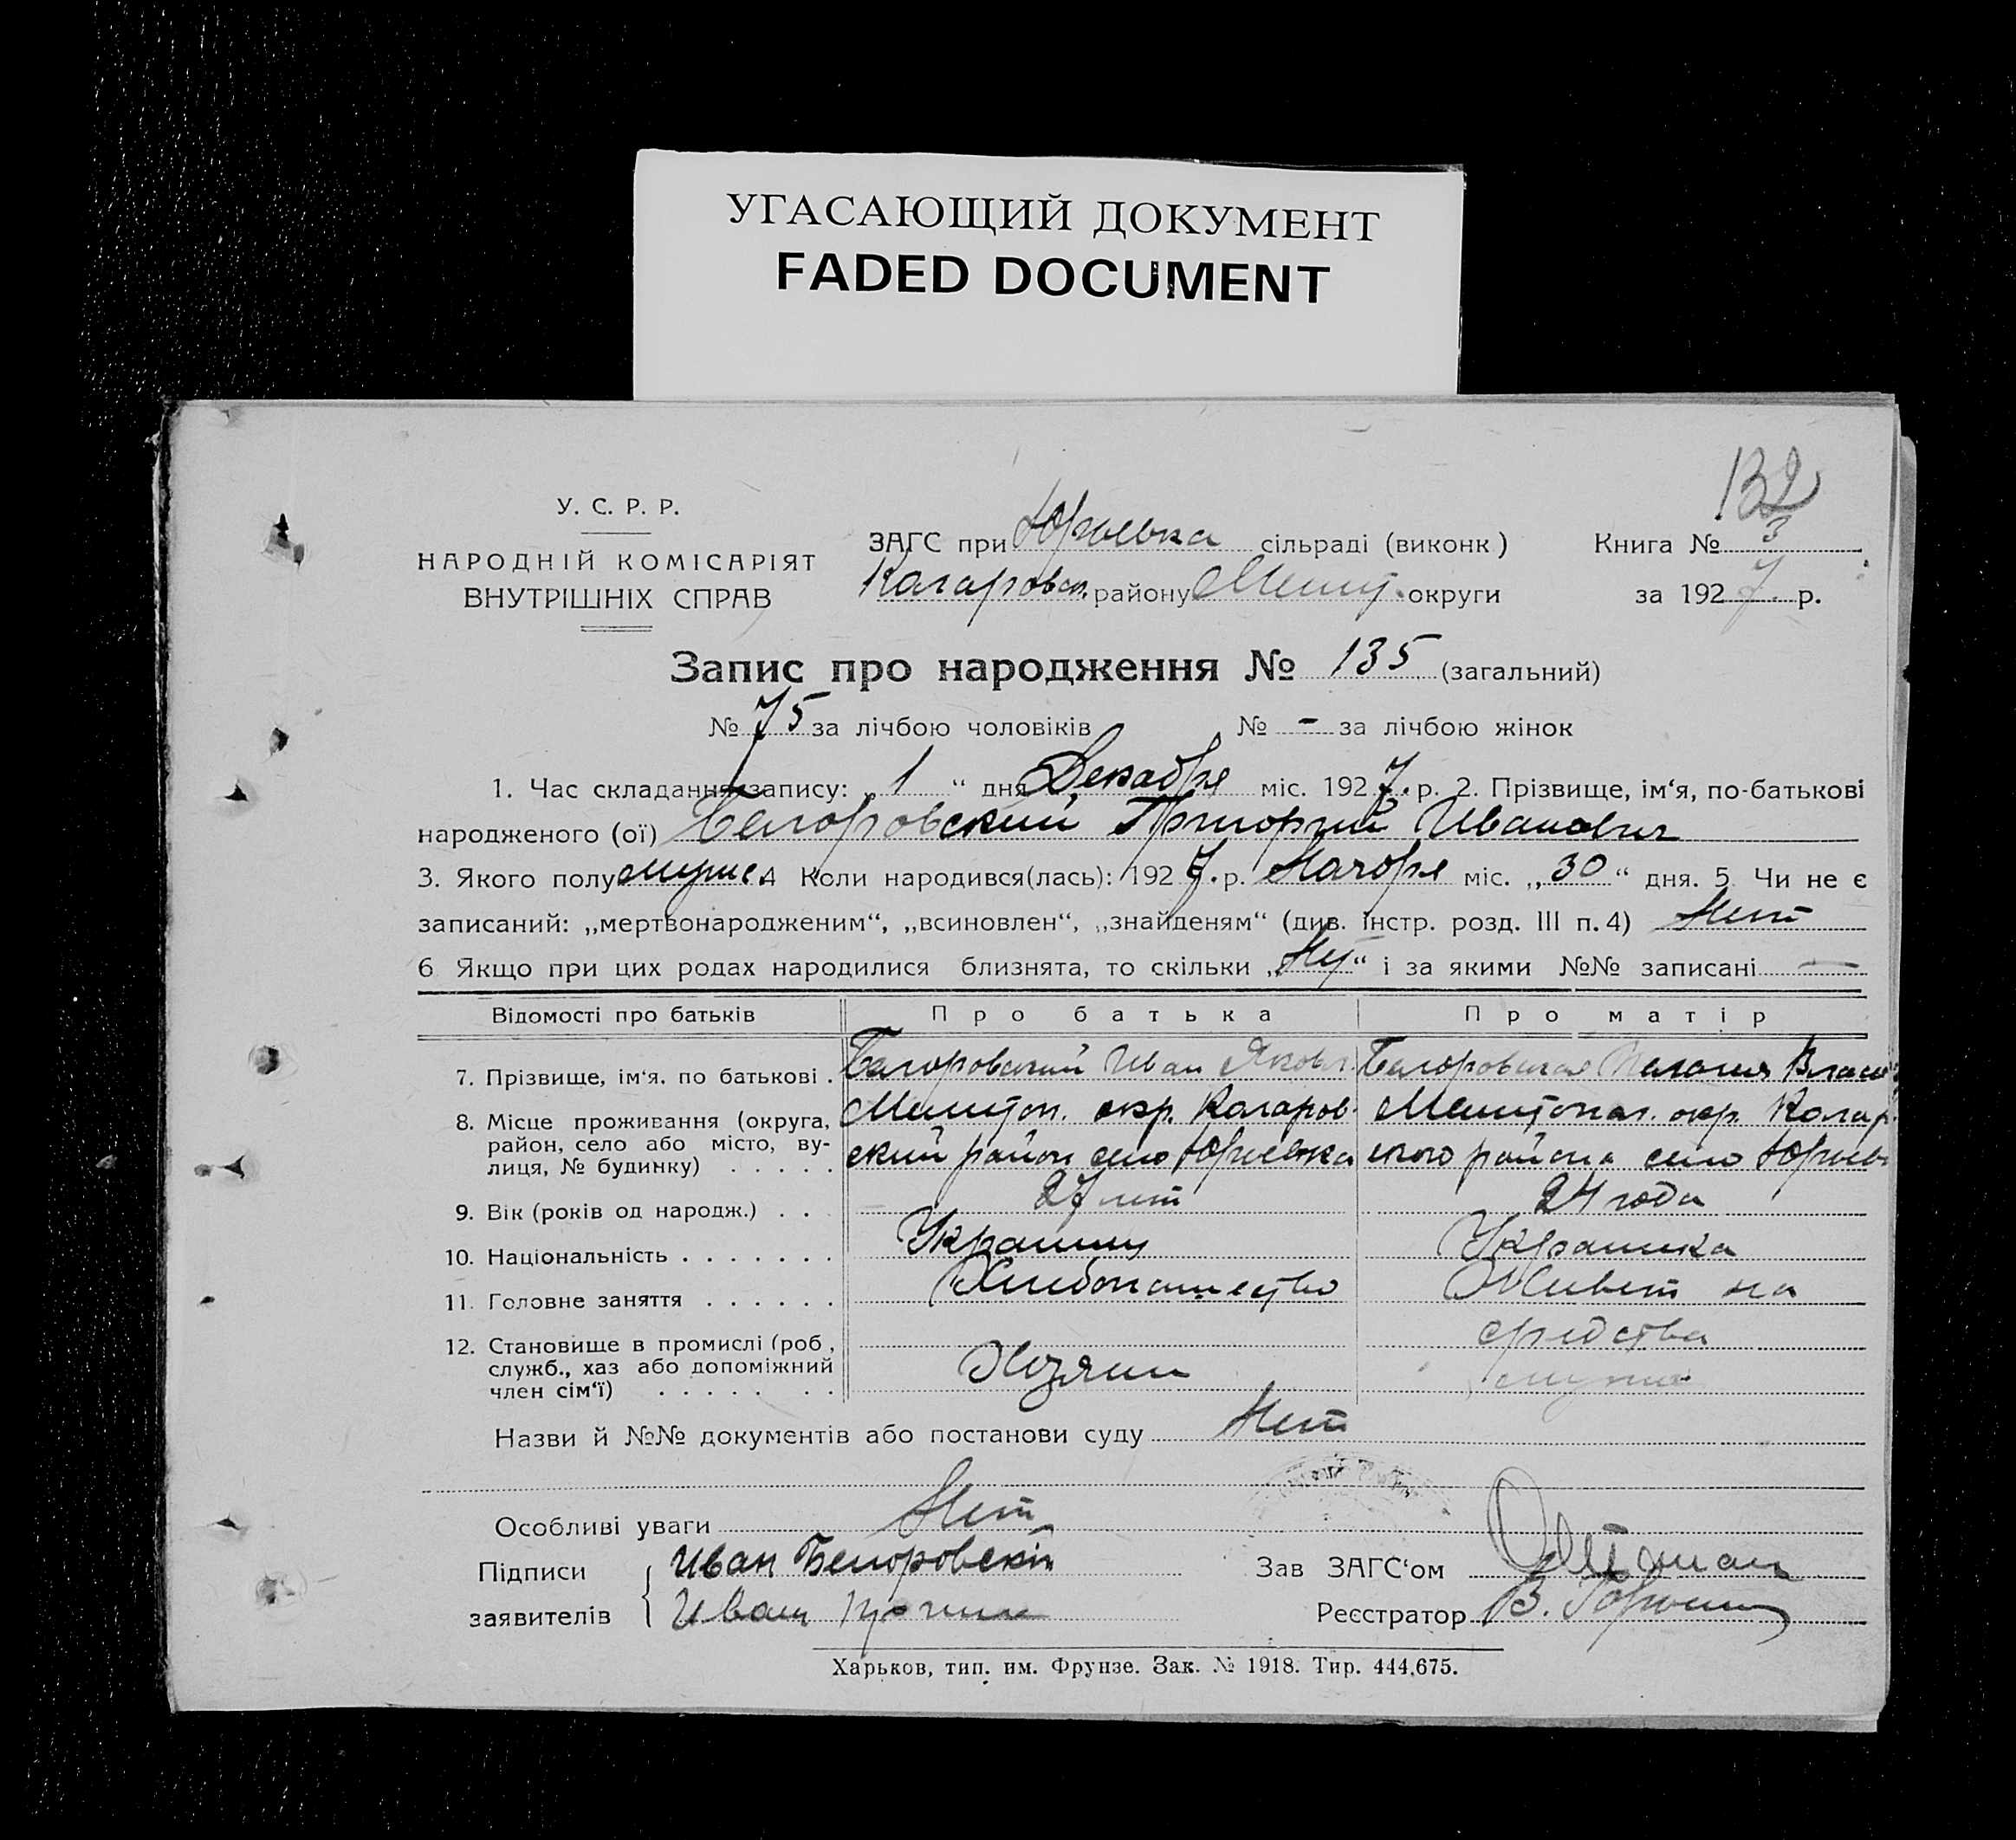 УГАСАЮЩИЙ ДОКУМЕНТ
FADED DOCUMENT
132
У. С. Р. Р.
НАРОДНІЙ КОМІСАРІЯТ
ВНУТРІШНІХ СПРАВ
ЗАГС при Юрьевка сільраді (виконк)
Книга № 3
району Мелит. округи
за 1927 р.
Запис про народження № 135 (загальний)
№ 75 за лічбою чоловіків № - за лічбою жінок
1. Час складання запису: „1“ дня Декабря міс. 1927 р. 2. Прізвище, ім‘я, по-батькові
народженого (ої) Белоровский Григорий Иванович
3. Якого полу мужс. 4 Коли народився(лась): 1927 р. Ноября міс. „30“ дня. 5 Чи не є
записаний: „мертвонародженим“, „всиновлен“, „знайденям“ (див. інстр. розд. III п. 4) Нет
6 Якщо при цих родах народилися близнята, то скільки „Нет“ і за якими №№ записані —
Відомості про батьків Про батька Про матір
7. Прізвище, ім‘я. по батькові . Белоровский Иван Яковл. Белоровская Пелагия Власо
8. Місце проживання (округа, Мелитоп. окр. Мелитопол. окр.
район, село або місто, ву- ский район село Юрьевка ского района село Юрьев
лиця, № будинку) . . . . .
9. Вік (років од народж.) . . . 27 лет 24 года
10. Національність . . . . . . . Украинец Украинка
11. Головне заняття . . . . . . Хлебопашество Живет на
12. Становище в промислі (роб, средства
служб., хаз або допоміжний Хозяин мужа
член сім‘ї) . . . . . . .
Назви й №№ документів або постанови суду Нет
Особливі уваги Нет
Підписи Иван Белоровский Зав ЗАГС‘ом
заявителів Иван Реєстратор В.
Харьков, тип. им. Фрунзе. Зак. № 1918. Тир. 444.675.